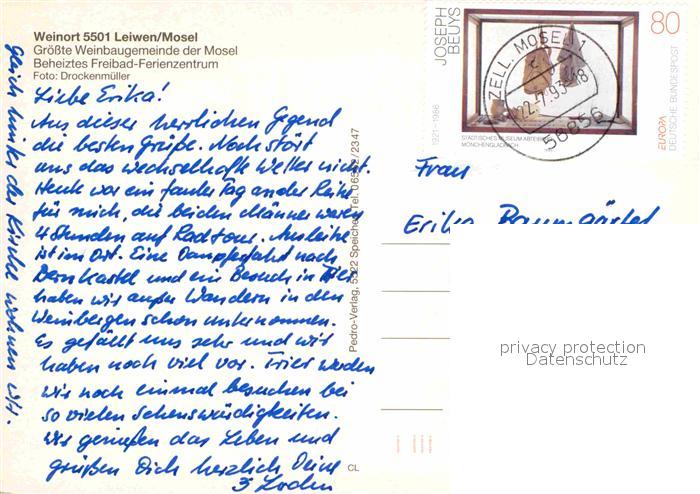 Weinort 5501 Leiwen/Mosel
Größte Weinbaugemeinde der Mosel
Beheiztes Freibad-Ferienzentrum
Foto: Drockenmüller
Liebe Erika!
Aus dieser herrlichen Gegend
die besten Grüße. Noch stört
uns das wechselhafte Wetter nicht.
Heute war ein fauler Tag an der Reihe
für mich, die beiden Männer waren
4 Stunden auf Radtour. Ausleihe
ist im Ort. Eine Dampferfahrt nach
Bernkastel und ein Besuch in Trier
haben wir außer Wandern in den
Weinbergen schon unternommen.
Es gefällt uns sehr und wir
haben noch viel vor. Trier werden
wir noch einmal besuchen bei
so vielen Sehenswürdigkeiten.
Wir genießen das Leben und
grüßen Dich herzlich Deine
3 Loden
Gleich hinter der Kirche wohnen wir.
Pedro-Verlag, 5522 Speicher, Tel. 06562/2347
CL
JOSEPH
BEUYS
1921-1986
STÄDTISCHES MUSEUM ABTEIBERG
MÖNCHENGLADBACH
80
DEUTSCHE BUNDESPOST
EUROPA
ZELL, MOSEL 1
22.-7.93-18
56856
Frau
Erika Baumgärtel
privacy protection
Datenschutz